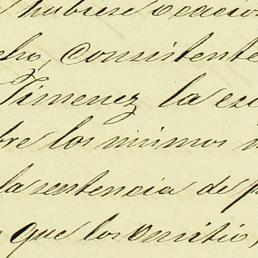 hubiese ocacio
cho, consistente
Jimenez la es
bre los mismos
la sentencia de p
que los omitio,